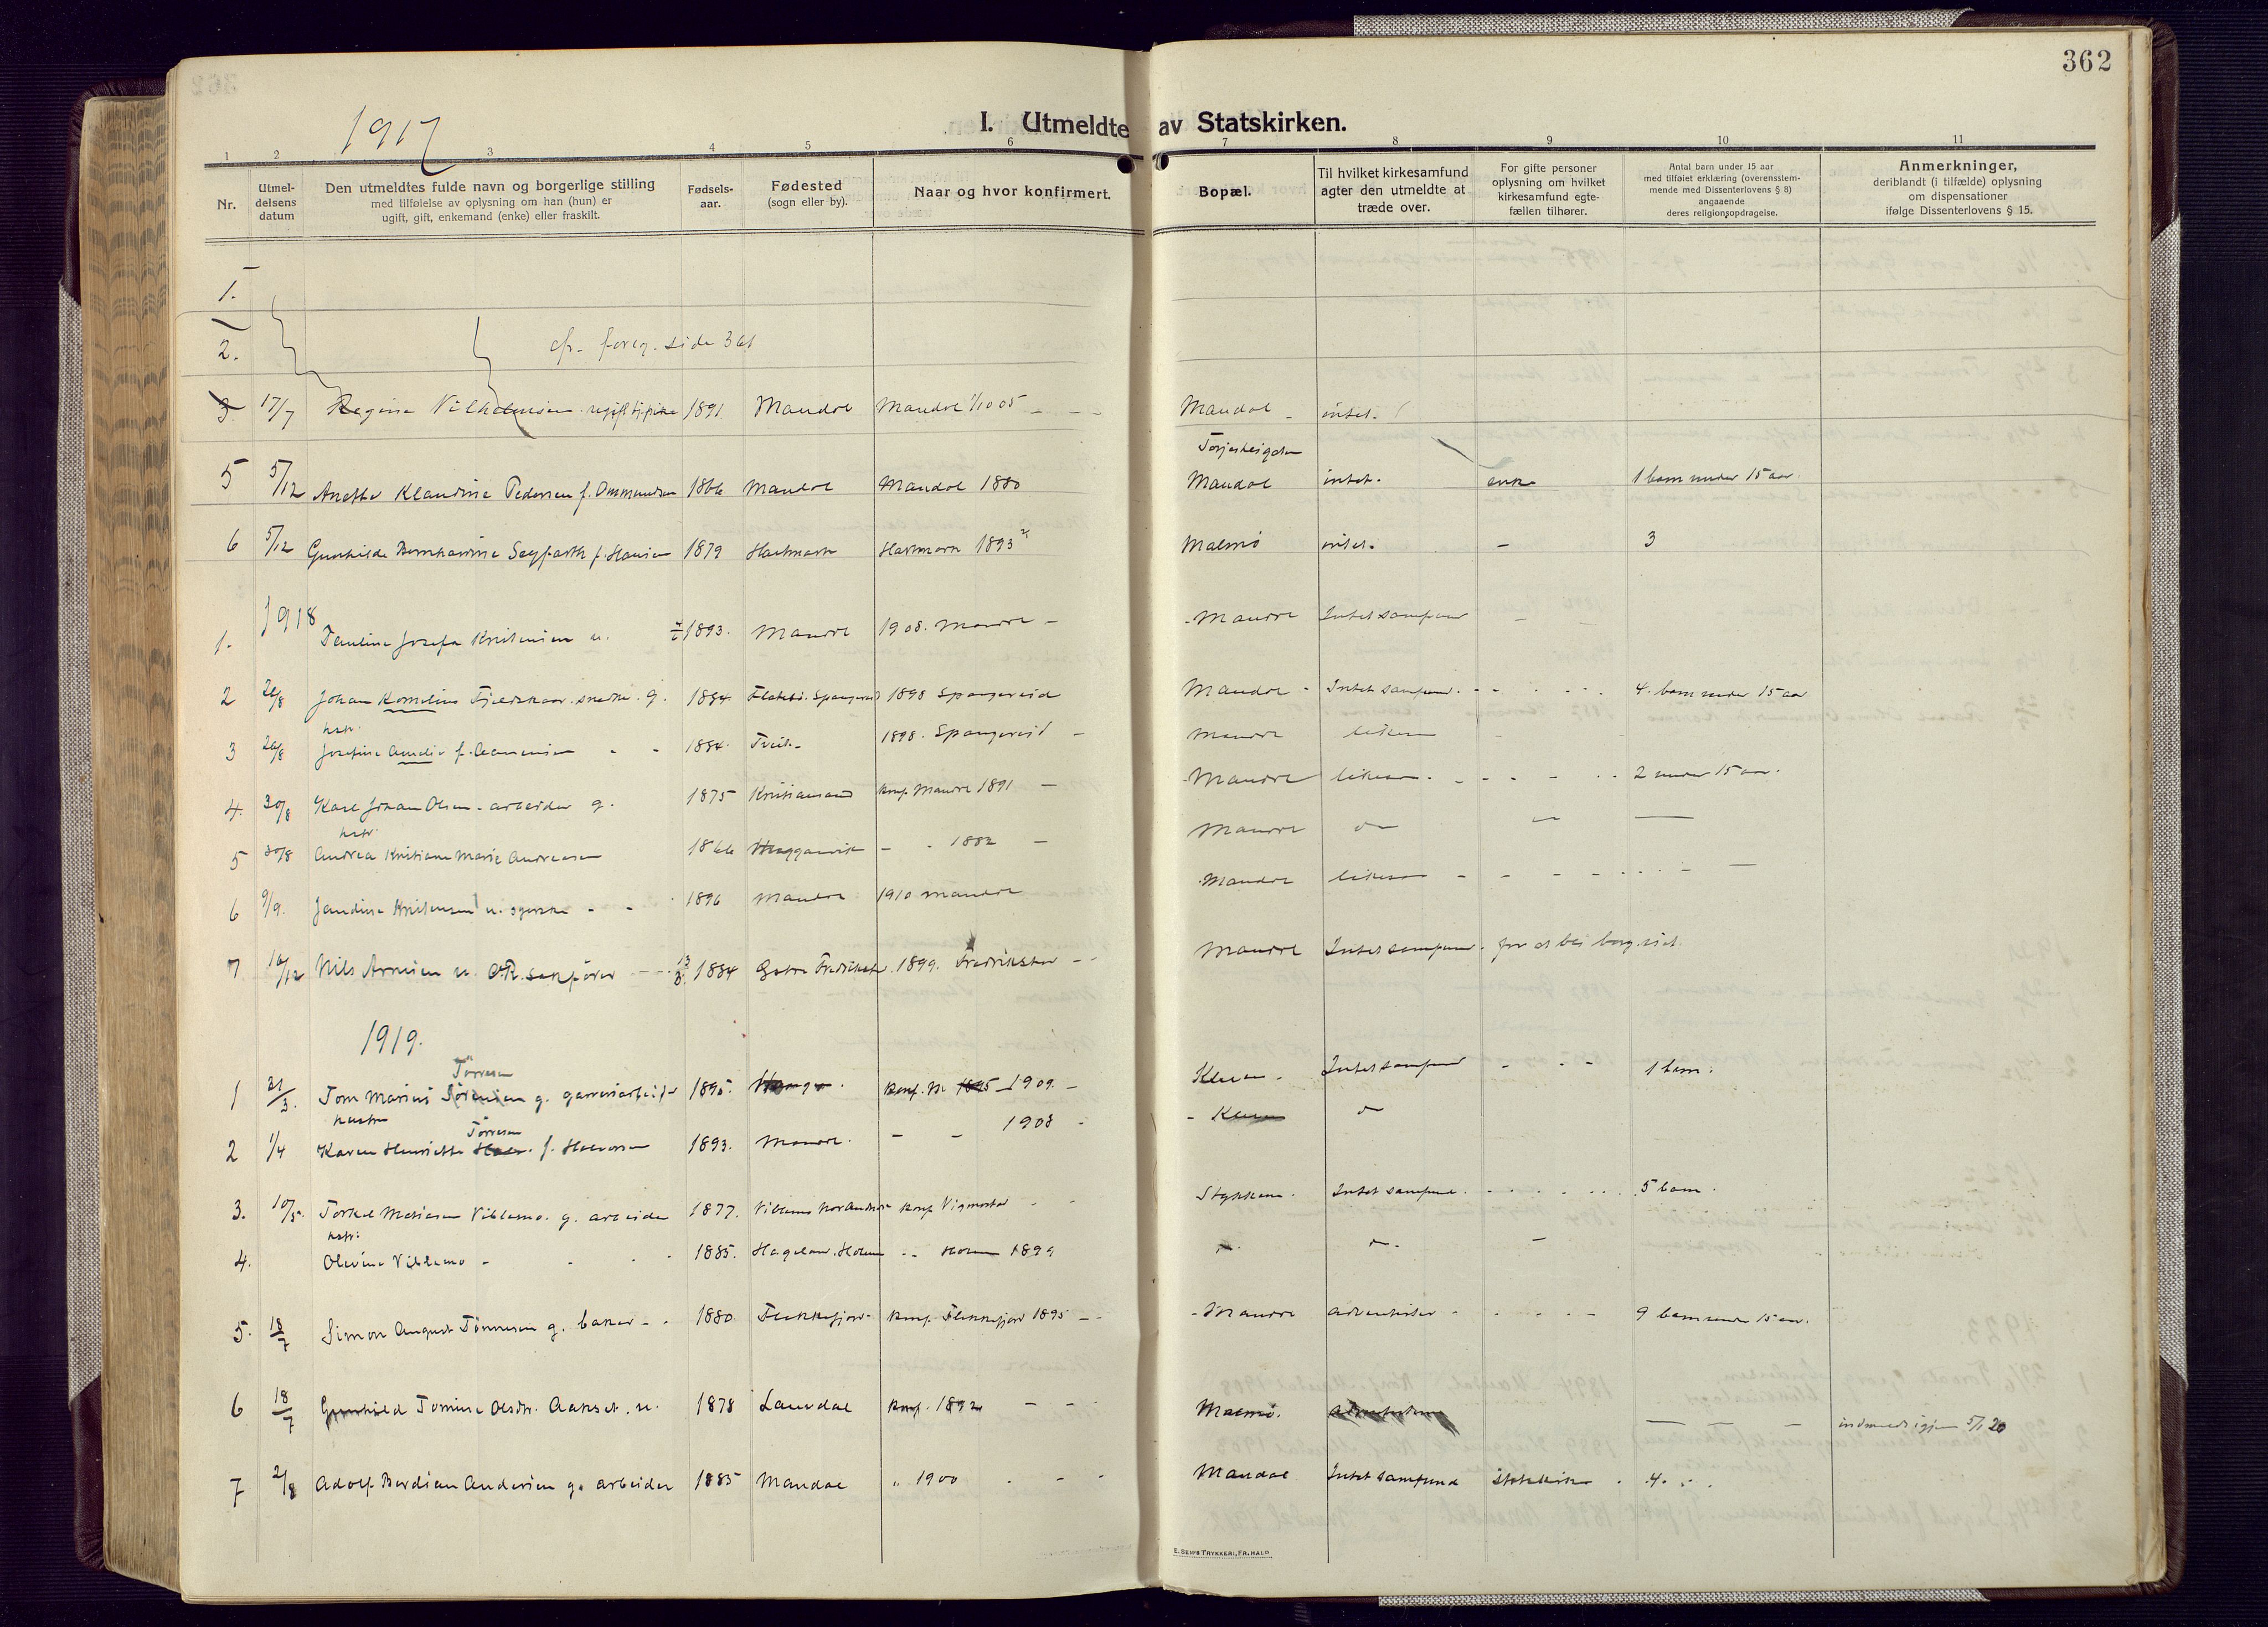 362
1917
I. Utmeldte av Statskirken.
1 2 3 4 5 6 7 8 9 10 11
Nr.
Utmel-
delsens
datum
Den utmeldtes fulde navn og borgerlige stilling
med tilføielse av oplysning om han (hun) er
ugift, gift, enkemand (enke) eller fraskilt.
Fødsels-
aar.
Fødested
(sogn eller by).
Naar og hvor konfirmert.
Bopæl.
Til hvilket kirkesamfund
agter den utmeldte at
træde over.
For gifte personer
oplysning om hvilket
kirkesamfund egte-
fællen tilhører.
Antal barn under 15 aar
med tilføiet erklæring (overensstem-
mende med Dissenterlovens § 8)
angaaende
deres religionsopdragelse.
Anmerkninger,
deriblandt (i tilfælde) oplysning
om dispensationer
ifølge Dissenterlovens § 15.
1.
2. cfr. foreg. side 361
3 17/7 Regine Vilhelmsen ugift 1891 Mandal Mandal 1/10 05 Mandal intet.
5 5/12 Anette Klaudine Pedersen f. Ommundsen 1866 Mandal Mandal 1880 Mandal intet. enke 1 barn under 15 aar.
6 5/12 Gunhilde Bernhardine Seyfarth f. Hansen 1879 Halsmark Halsmark 1893 Malmø intet. - 3
1918
1. Pauline Josefa Kristensen u. 1893. Mandal 1908. Mandal - Mandal Intet samfund -
2 26/8 Johan Kornelius Fjeldskaar. snekker. g. 1884 Spangereid 1898 Spangereid Mandal - Intet samfund. 4. barn under 15 aar
hstr.
3 26/8 Josefine Amalie f. 1884. Tveit- 1898. Spangereid - Mandal likesaa
4. 30/8 Karl Johan Olsen - arbeider g. 1875 Kristiansand konf. Mandal 1891 - Mandal likesaa. 2 under 15 aar.
hstr.
5 30/8 Andrea Kristiane Marie Andreasen 1866 - 1882 - Mandal do
6 9/9. Jandine Kristensen u. syerske 1896 Mandal 1910 Mandal Mandal likesaa
7 10/12 Nils Arnesen u. O.R. sakfører 1884 Fredrikstad. 1899. Fredrikstad Mandal Intet samfund.
1919.
Tørresen
1 21/3. Tom Marius g. garveriarbeider 1895. konf. M. 1895 - 1909. - Kleven - Intet samfund 1 barn.
hustru
Tørresen
2 1/4 Karen Henriette f. Halvorsen 1893. Mandal. 1908 - Kleven do
3. 10/5. Torkel Matiasen Viblemo. g. arbeider 1877. konf. Vigmostad Intet samfund. 5 barn.
hstr:
4. Olivine Viblemo - 1885. Holum 1899
5. 18/7 Simon August Tønnesen g. baker - 1880 Flekkefjord - konf. Flekkefjord 1895 - Mandal adventister - 9 barn under 15 aar.
6 18/7 Gunhild Tomine Olsdtr. Aakset. u. 1878 Laudal konf. 1892 Malmø. indmeldt igjen 5/1 20
7 2/8 Adolf Berdian Andersen g. arbeider 1885 Mandal " 1900 Mandal Intet samfund statskirken 4.
E. SEMS TRYKKERI, FR. HALD